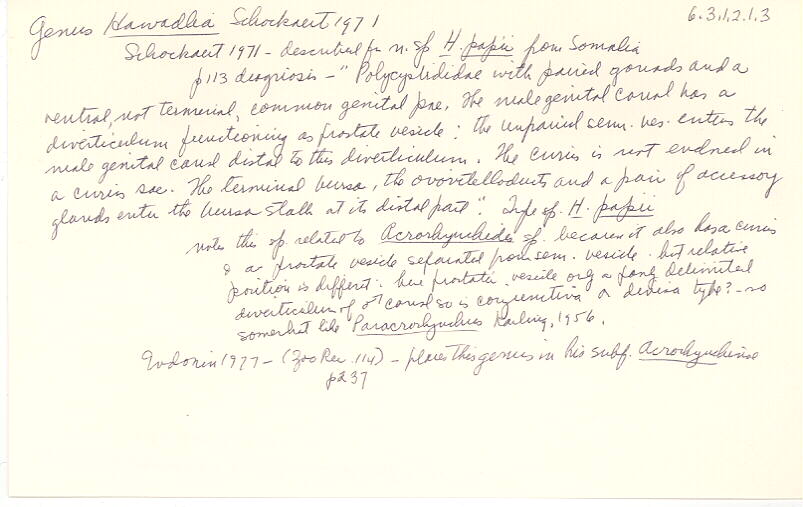 6.3.1.2.1.3
Genus Hawadlia Schockaert 1971
Schockaert 1971 - described for n. sp H. papii from Somalia
p113 diagnosis - "Polycystididae with paired gonads and a
ventral, not terminal, common genital pore. The male genital canal has a
diverticulum functioning as prostate vesicle: the unpaired sem. ves. enters the
male genital canal distal to this diverticulum. The cirrus is not enclosed in
a cirrus sac. The terminal bursa, the ovovitelloducts and a pair of accessory
glands enter the bursa stalk at its distal part". Type sp. H. papii
notes this sp. related to Acrorhynchides sp. because it also has a cirrus
& a prostate vesicle separated from sem. vesicle. but relative
position is different. here prostatic vesicle only a poorly delimited
diverticulum of ♂ canal so is conjunctiva or divisa type? - so
somewhat like Paracrorhynchus Karling, 1956.
Evdonin 1977 - (Zoo Rec. 114) - places this genus in his subf. Acrorhynchinae
p237